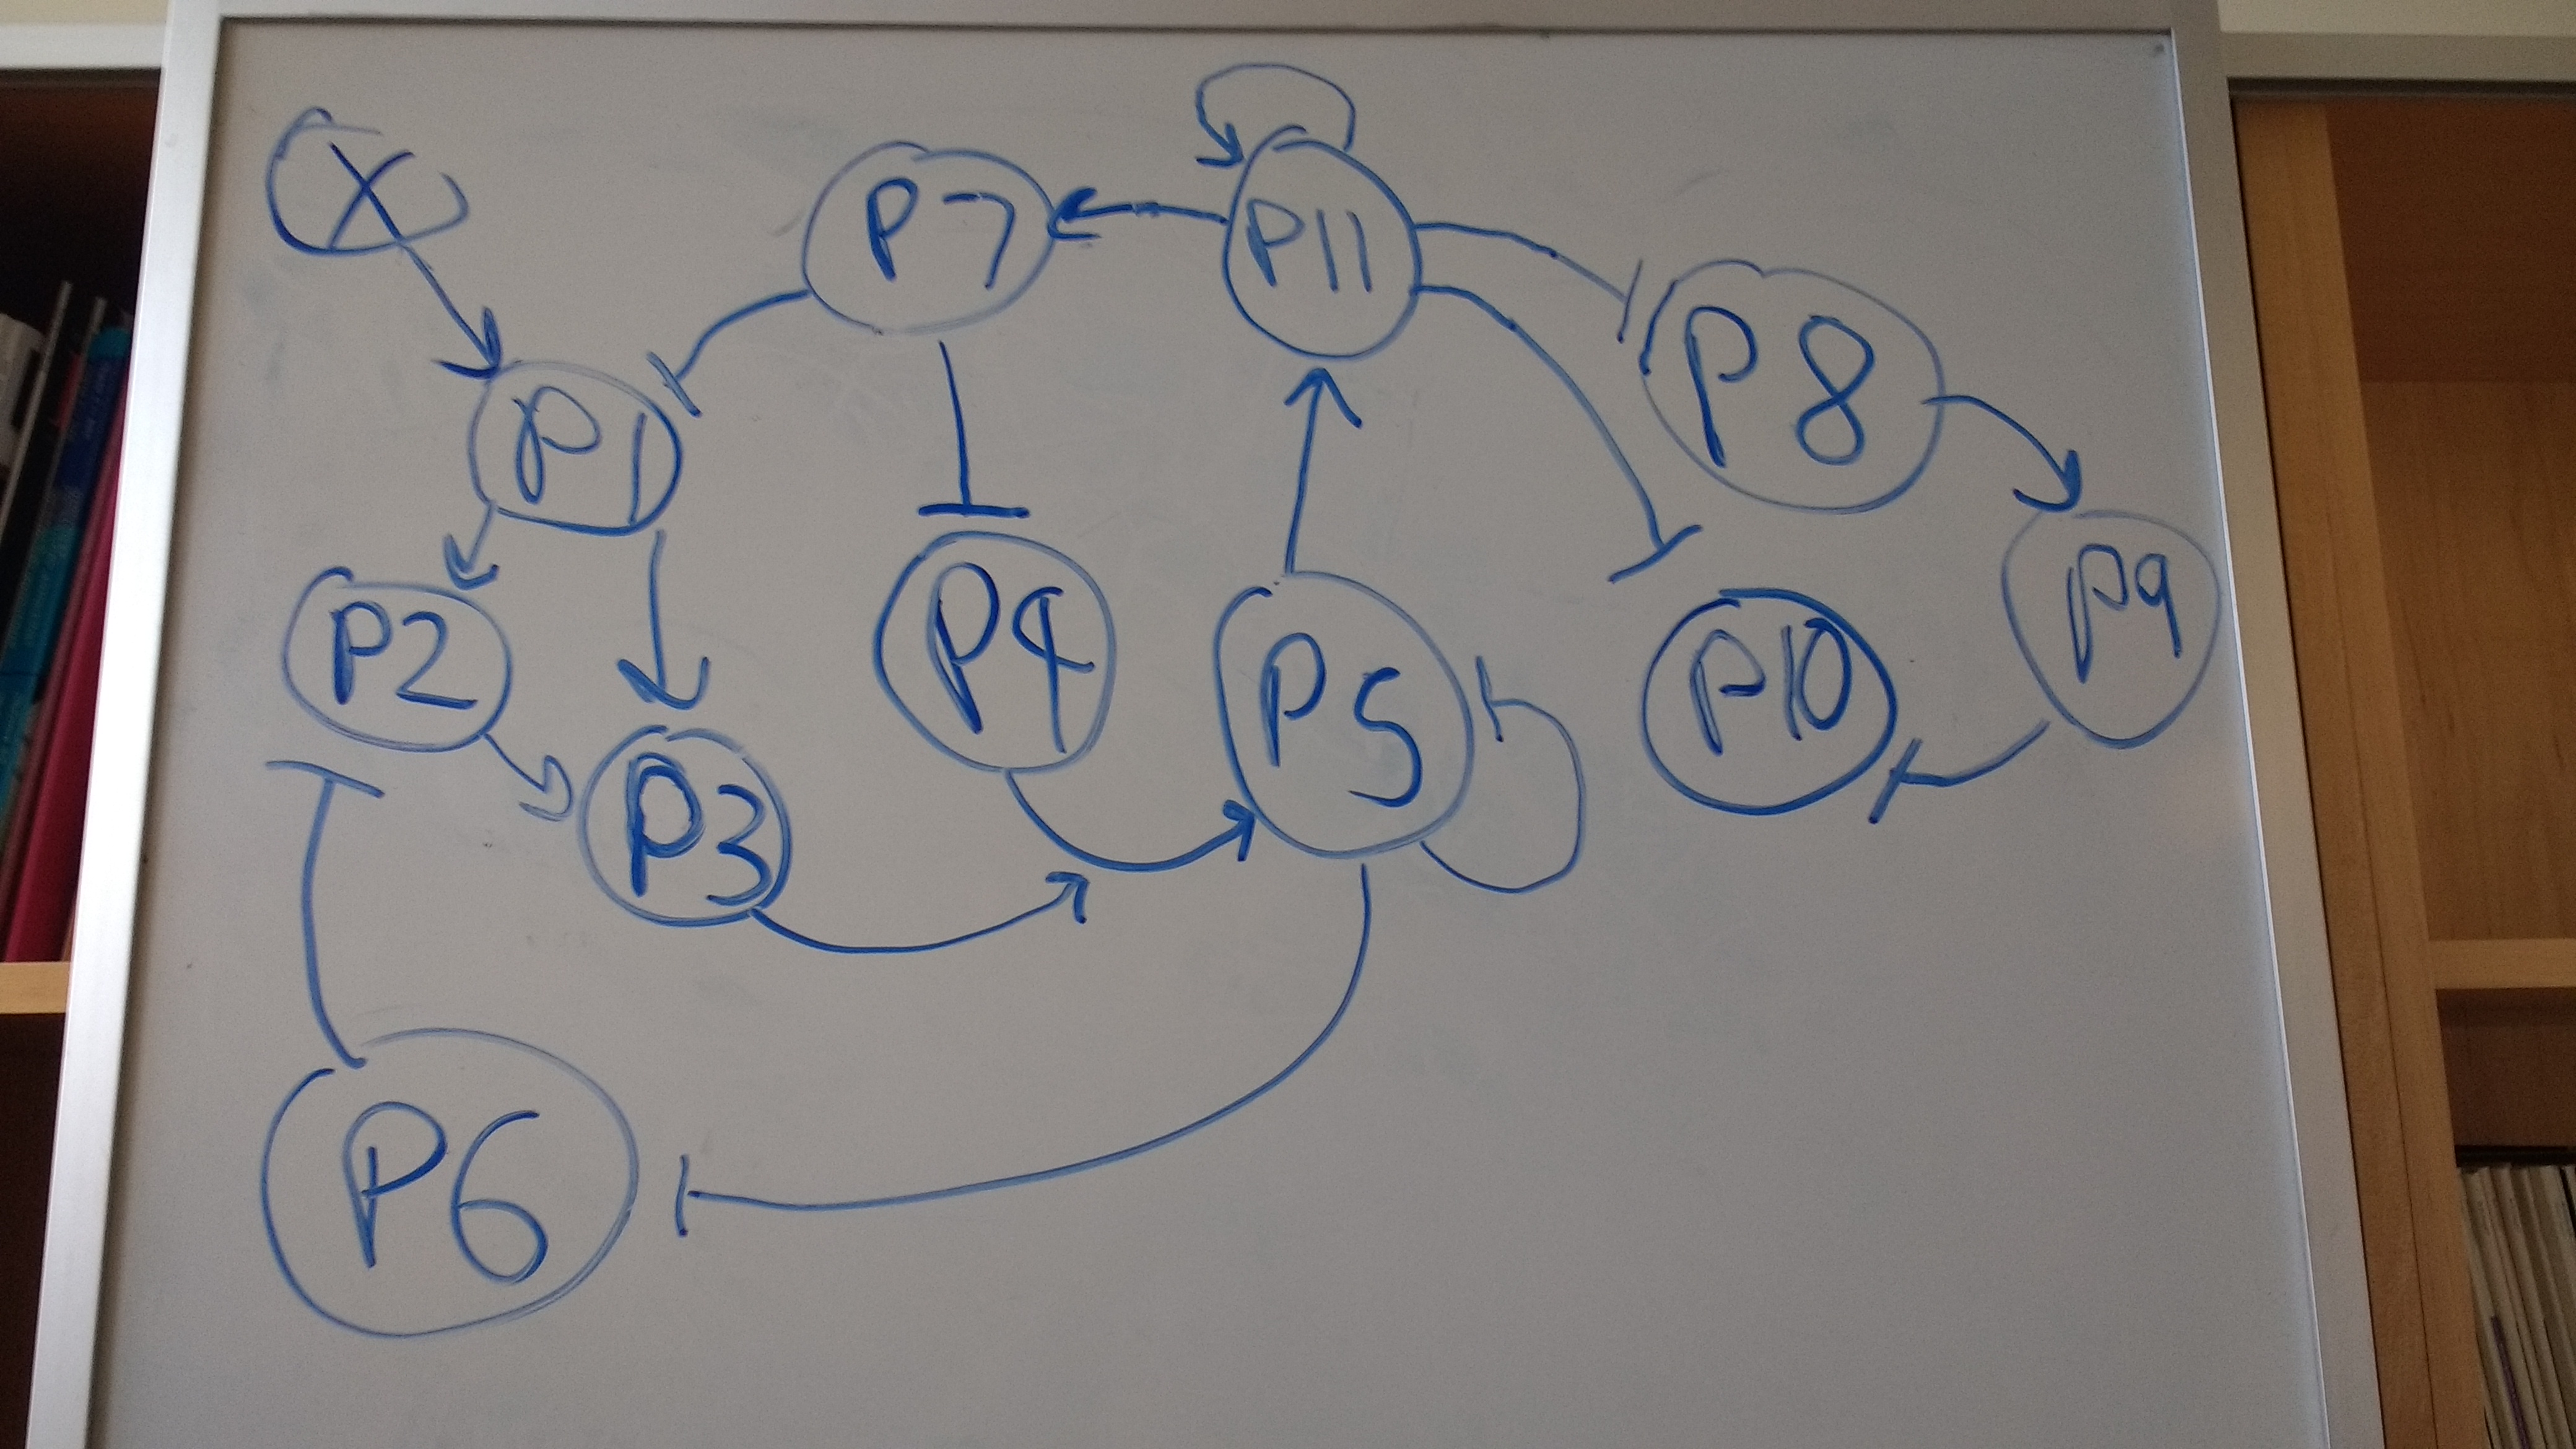 X
P7
P11
P8
P1
P9
P2
P4
P5
P10
P3
P6